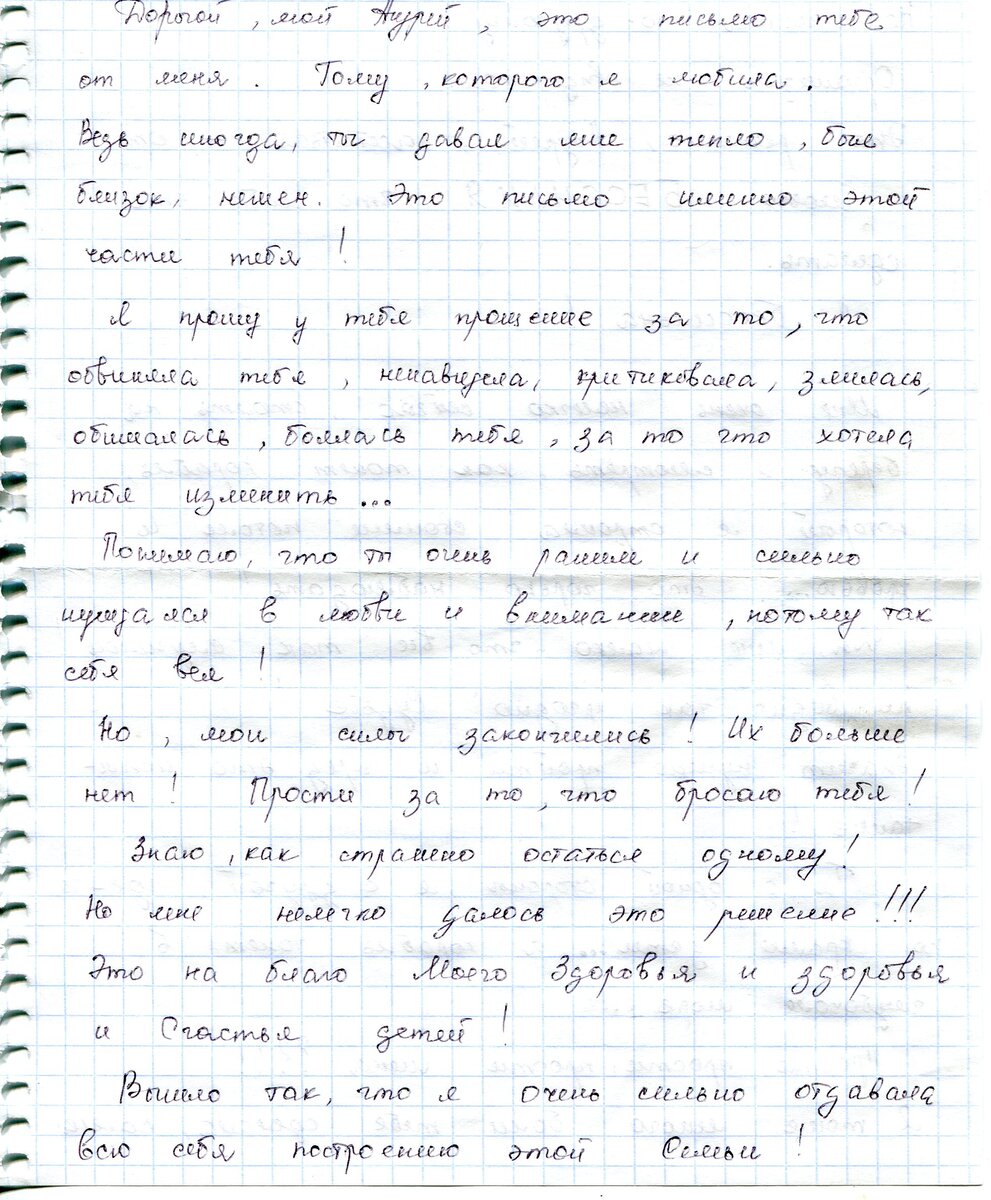 Дорогой, мой Андрей, это письмо тебе
от меня. Тому, которого я любила.
Ведь иногда, ты давал мне тепло, был
близок, нежен. Это письмо именно этой
части тебя!
Я прошу у тебя прощение за то, что
обвиняла тебя, ненавидела, критиковала, злилась,
обижалась, боялась тебя, за то что хотела
тебя изменить...
Понимаю, что ты очень раним и сильно
нуждался в любви и внимании, потому так
себя вел!
Но, мои силы закончились! Их больше
нет! Прости за то, что бросаю тебя!
Знаю, как страшно остаться одному!
Но мне нелегко далось это решение!!!
Это на благо Моего Здоровья и здоровья
и Счастья детей!
Вышло так, что я очень сильно отдавала
всю себя построению этой Семьи!